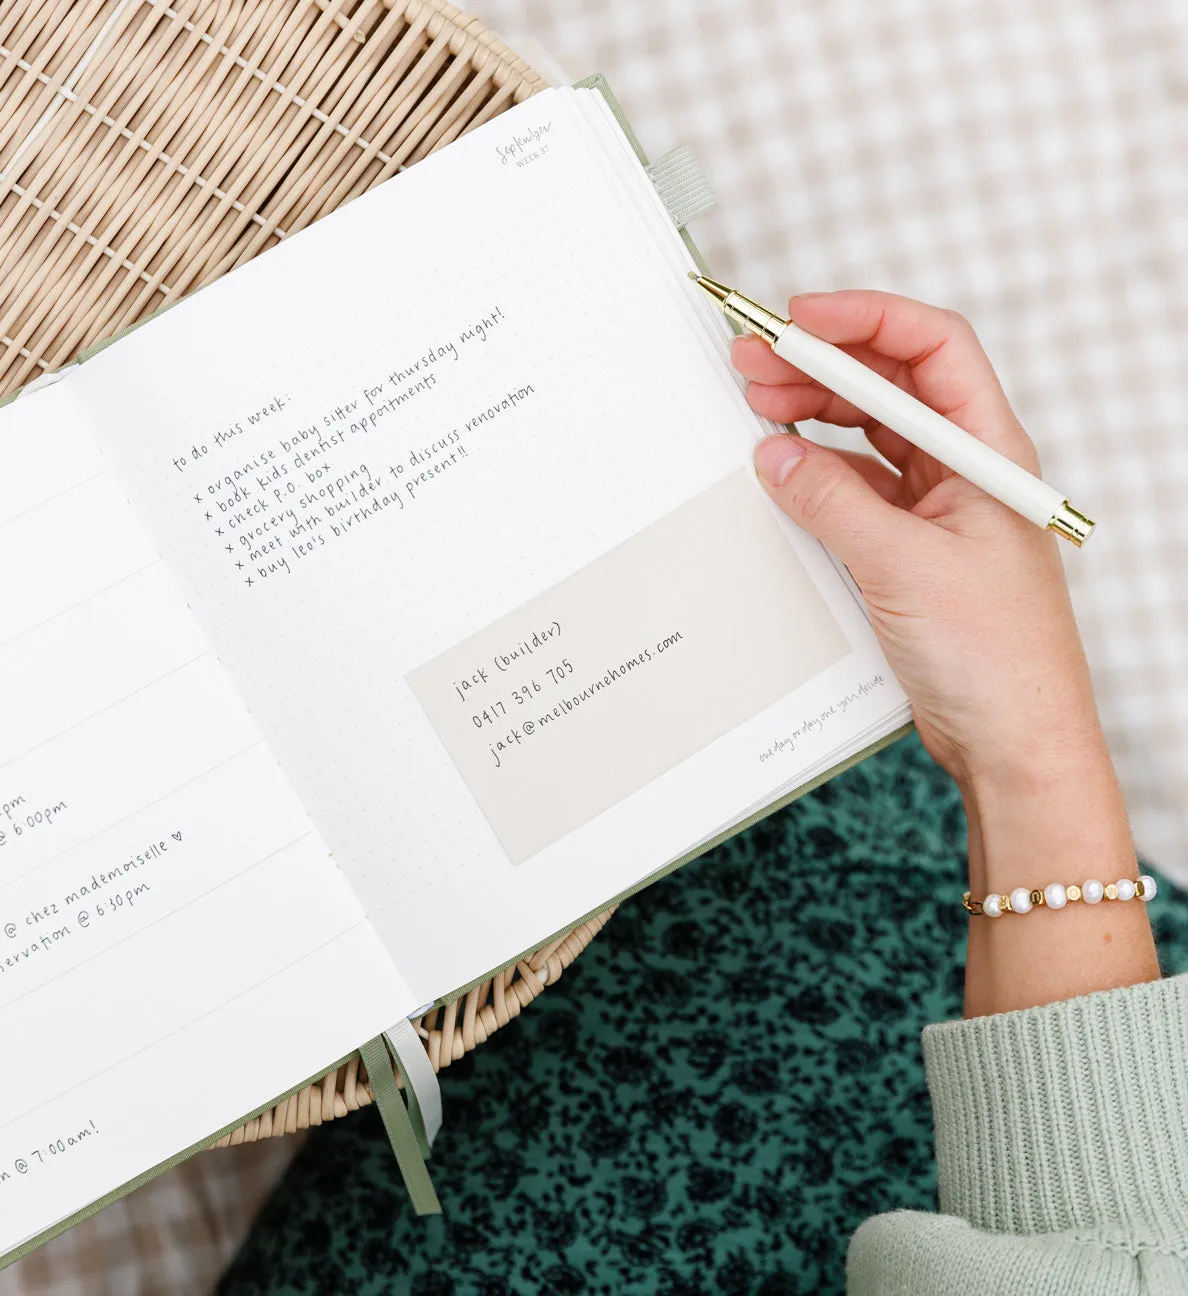 September
WEEK 37
to do this week:
x organise baby sitter for thursday night!
x book kids dentist appoitments
x check P.O. box
x grocery shopping
x meet with builder to discuss renovation
x buy leo's birthday present!!
jack (builder)
0417 396 705
jack@melbournehomes.com
one day or day one you decide
pm
@ 6:00pm
@ chez mademoiselle ♥
ervation @ 6:30pm
@ 7:00am!